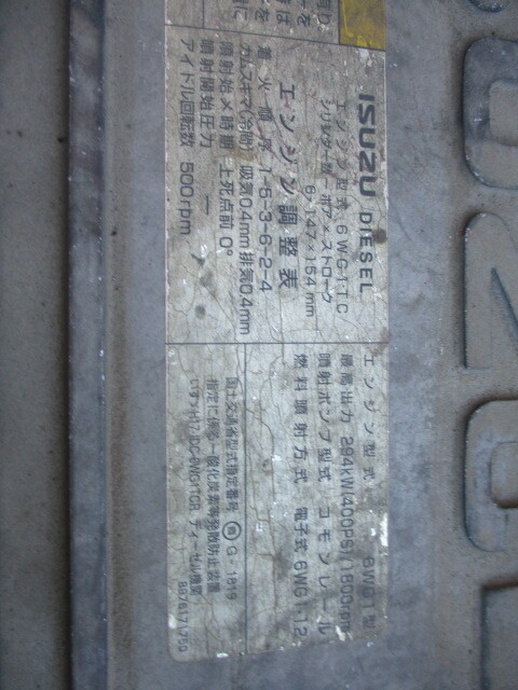 ISUZU DIESEL
エンジン型式 6WG1-TC
シリンダー数-ボア×ストローク
6-147×154mm
エンジン調整表
着火順序 1-5-3-6-2-4
カムスキマ(冷間) 吸気0.4mm排気0.4mm
噴射始メ時期 上死点前0°
噴射開始圧力 —
アイドル回転数 500rpm
エンジン型式 6WG1型
最高出力 294kW(400PS)/1800rpm
噴射ポンプ型式 コモンレール
燃料噴射方式 電子式6WG1-12
国土交通省型式指定番号 G-1819
指定に係る一酸化炭素等発散防止装置
いすゞH17/DC-6WG1TCR ディーゼル機関